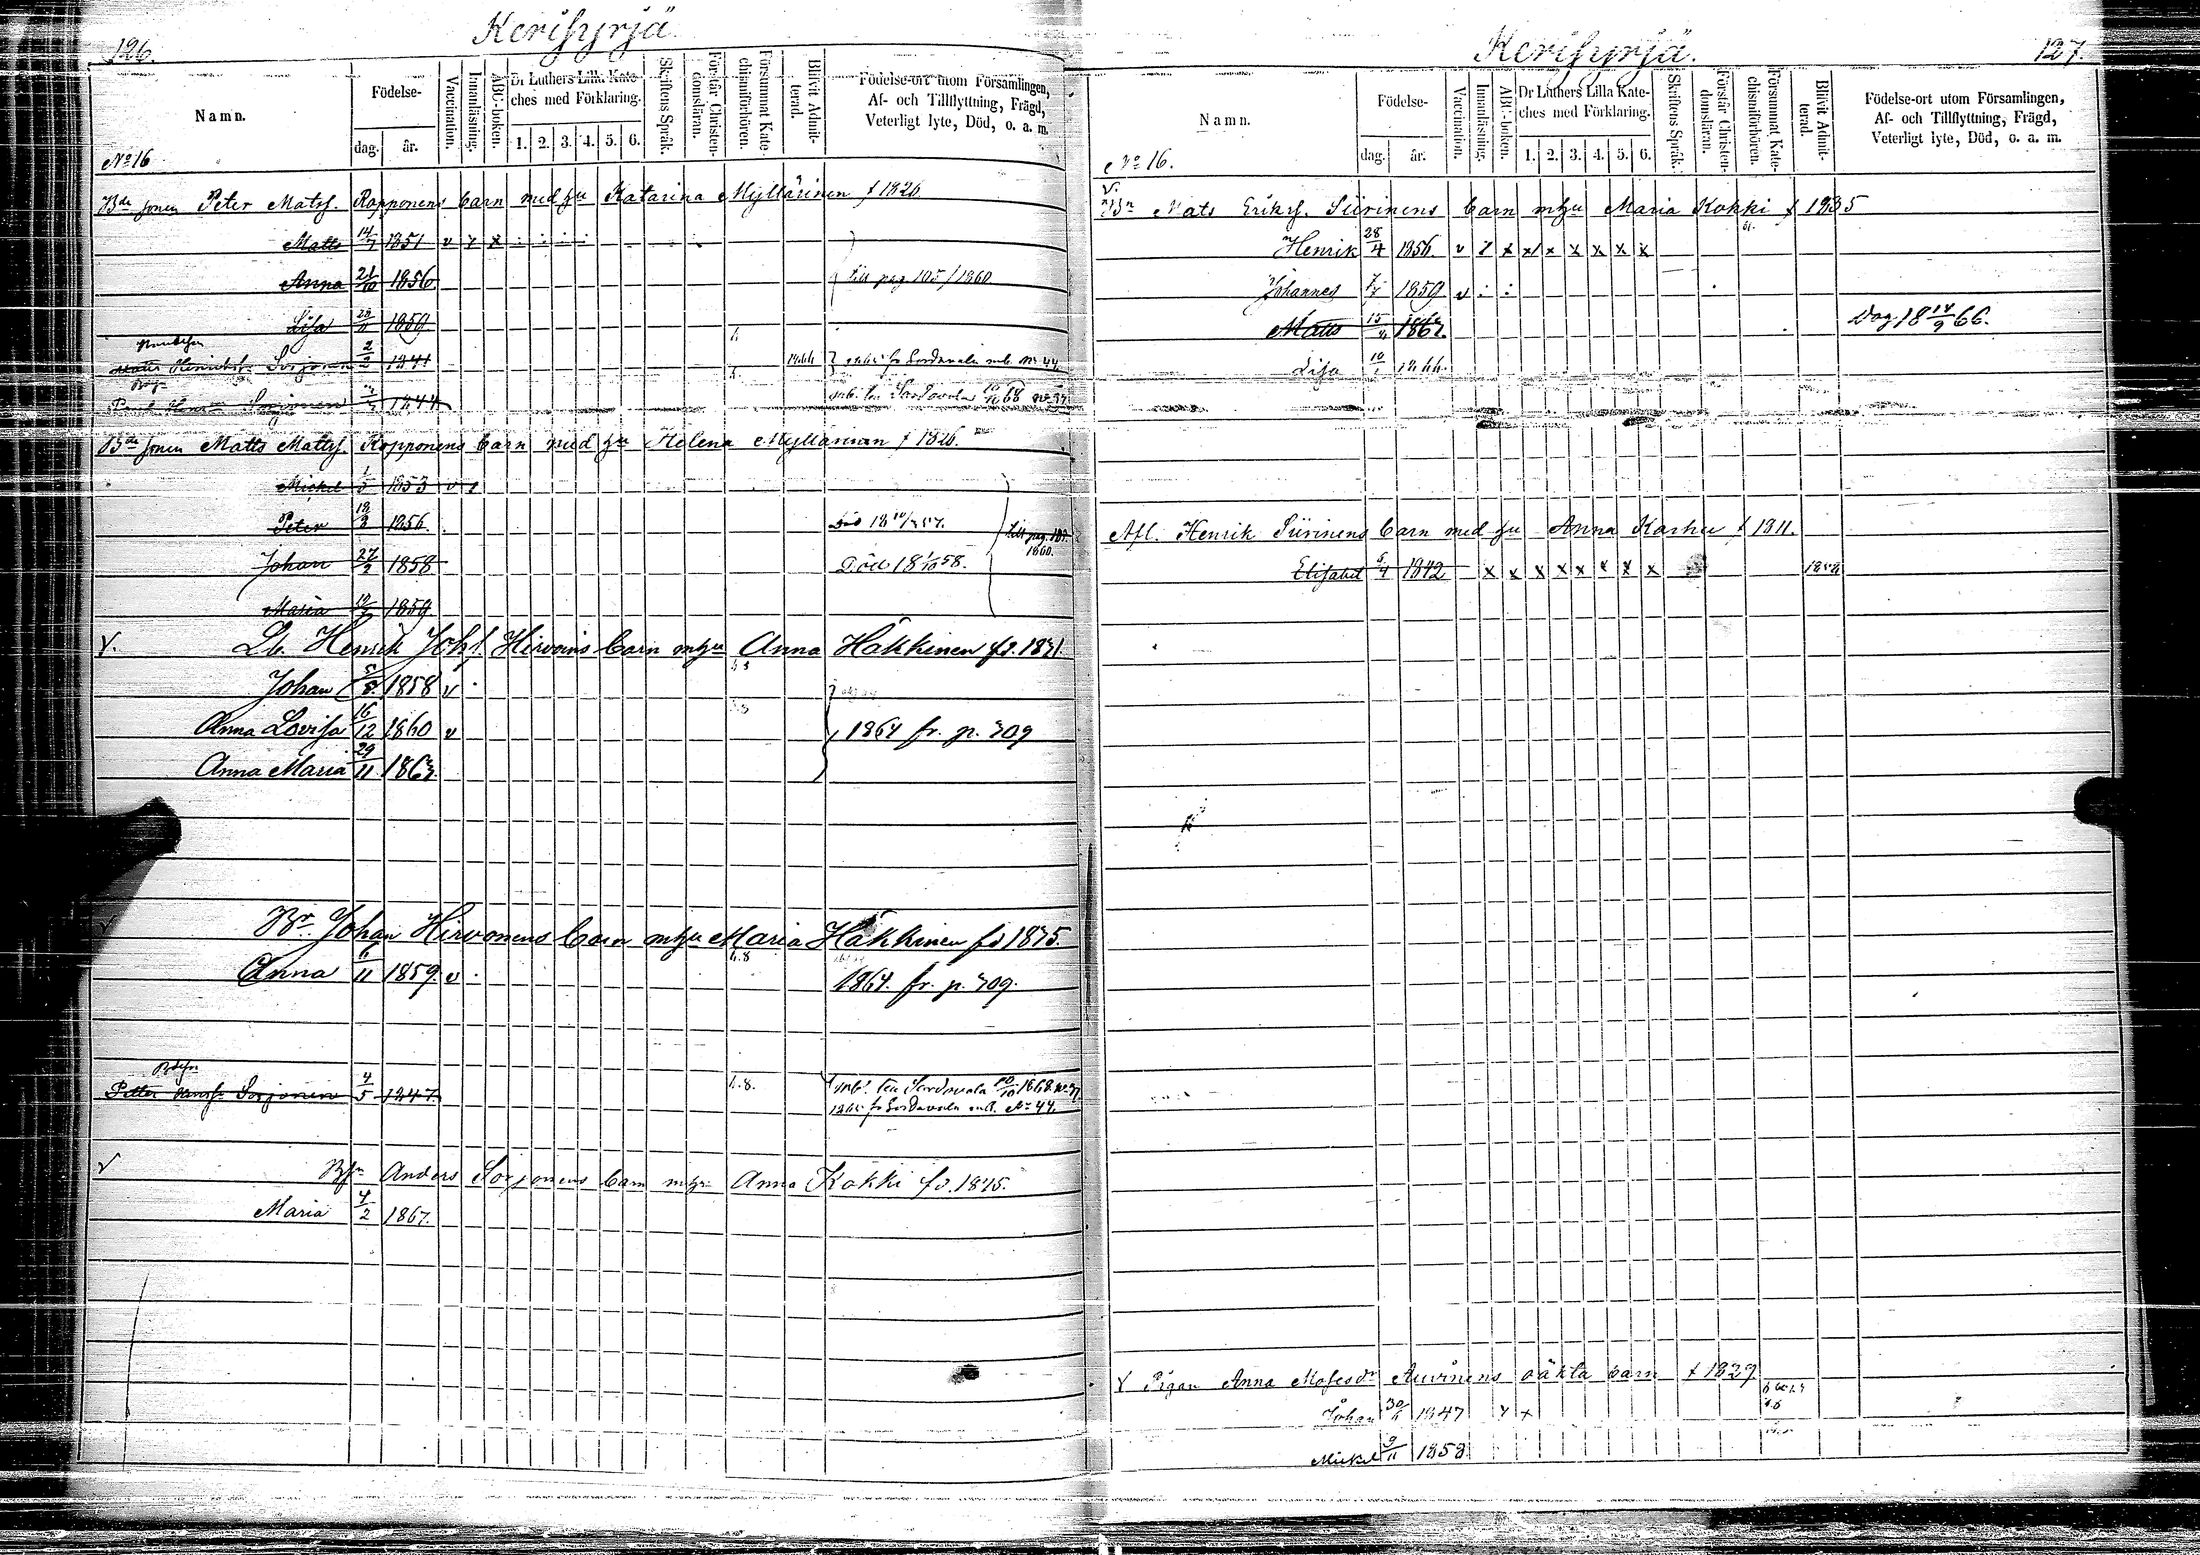 126.
Kerisyrjä
Namn.
Födelse-
dag.
år.
Vaccination.
Innanläsning.
ABC-boken.
Dr Luthers Lilla Kate-
ches med Förklaring.
1. 2. 3. 4. 5. 6.
Skriftens Språk.
Förstår Christen-
domsläran.
Försummat Kate-
chismiförhören.
Blivit Admit-
terad.
Födelse-ort utom Församlingen,
Af- och Tillflyttning, Frägd,
Veterligt lyte, Död, o. a. m.
No 16
Bde sonen Peter Matss. Ropponens barn med hu Katarina Myllärinen f 1826
Matts 14/7 1851 v
Anna 21/10 1856 till pag. 105 / 1860
Lisa 1859
Henrikss. Sorjonen 2/2 1841 fr Sordavala mb. No 44
Sorjonen 1844 mb. till Sordavala 10/10 68 No 37
Bde sonen Matts Matss. Ropponens barn med hu Helena Myllärinen f 1826.
Mickel 1/5 1853 v
Peter 18/3 1856
till pag. 1860.
Johan 27/2 1858 Död 18 1/10 58.
Maria 1859
V. Henrik Johss. Hirvoins barn mhu Anna Häkkinen fd. 1831.
Johan 5/8 1858 v
Anna Lovisa 16/12 1860 v 1864 fr. p. 309
Anna Maria 29/11 1863.
V Br. Johan Hirvonens barn mhu Maria Häkkinen fd 1835.
Anna 6/11 1859. v 1864. fr. p. 309.
Petter Sorjonen 4/5 1847. mb. till Sordavala 10/10 1868 No 37
fr Sordavala mb. No 44.
V Anders Sorjonens barn mhu Anna Kokki fd. 1845.
Maria 4/2 1867.
Kerisyrjä.
127.
Namn.
Födelse-
dag.
år.
Vaccination.
Innanläsning.
ABC-boken.
Dr Luthers Lilla Kate-
ches med Förklaring.
1. 2. 3. 4. 5. 6.
Skriftens Språk.
Förstår Christen-
domsläran.
Försummat Kate-
chismiförhören.
Blivit Admit-
terad.
Födelse-ort utom Församlingen,
Af- och Tillflyttning, Frägd,
Veterligt lyte, Död, o. a. m.
No 16.
V Bn Mats Erikss. Siirinens barn mhu Maria Kokki f 1835
Henrik 28/4 1856. v x x x x x x x
Johannes 1859 v
Matts 15/4 1862 18 14/9 66.
Lisa 10/1 1866.
Afl. Henrik Siirinens barn med hu Anna Karhu f 1811.
Elisabet 1842 x x x x x x x x
V Pigan Anna Mosesdr Auvinens oäkta barn f 1829
Johan 1847
Mickel 9/11 1858